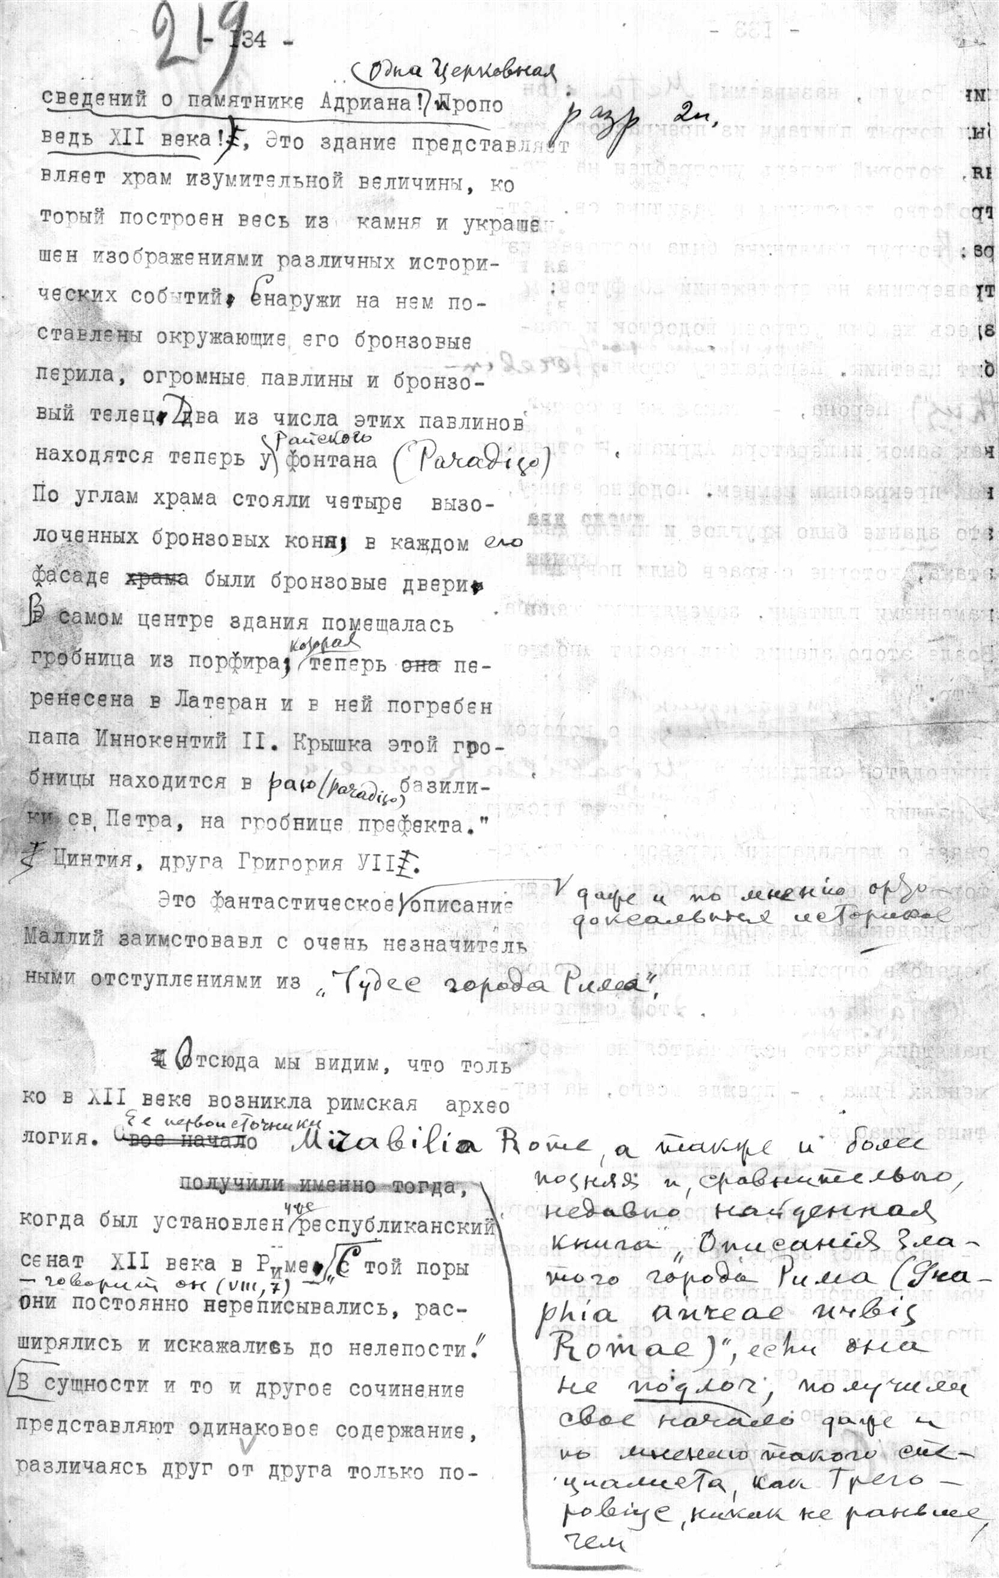 219
- 134 -
одна церковная
сведений о памятнике Адриана! Пропо
разр 2п.
ведь XII века!, Это здание представляет
вляет храм изумительной величины, ко
торый построен весь из камня и украшен
шен изображениями различных истори-
ческих событий, Снаружи на нем по-
ставлены окружающие его бронзовые
перила, огромные павлины и бронзо-
вый телец, Два из числа этих павлинов
райского
находятся теперь у фонтана (Paradizo)
По углам храма стояли четыре вызо-
лоченных бронзовых коня, в каждом его
фасаде храма были бронзовые двери.
В самом центре здания помещалась
которая
гробница из порфира, теперь она пе-
ренесена в Латеран и в ней погребен
папа Иннокентий II. Крышка этой гро-
бницы находится в раю (paradizo) базили-
ки св. Петра, на гробнице префекта."
Цинтия, друга Григория УІІ.
Это фантастическое описание
даже и по мнению орто-
доксальных историков
Маллий заимстовавл с очень незначитель
ными отступлениями из "Чудес города Рима",
Отсюда мы видим, что толь
ко в XII веке возникла римская архео
Ее первоисточники
логия. Свое начало Mirabilia Rome, а также и более
получили именно тогда,
поздняя и, сравнительно,
недавно найденная
книга "Описания Зла-
того города Рима (Gra-
phia aureae urbis
Romae)", если она
не подлог, получили
свое начало даже и
по мнению такого спе-
циалиста, как Грего-
ровіус, никак не раньше,
чем
уже
когда был установлен республиканский
сенат XII века в Риме, "С той поры
— говорит он (VIII, 7) —
они постоянно переписывались, рас-
ширялись и искажались до нелепости."
В сущности и то и другое сочинение
представляют одинаковое содержание,
различаясь друг от друга только по-